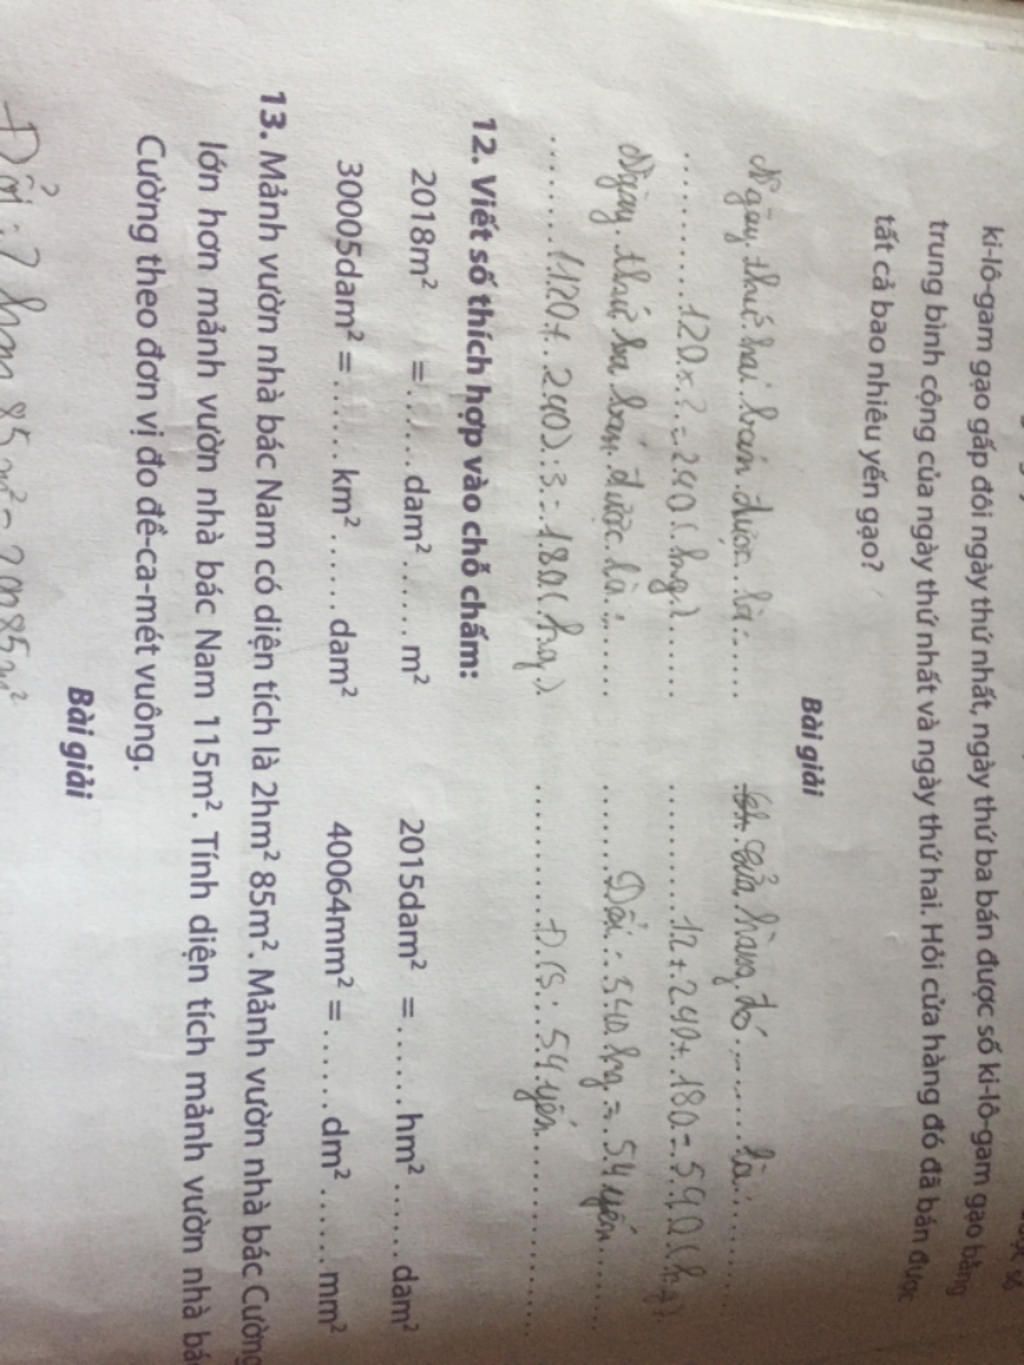 ki-lô-gam gạo gấp đôi ngày thứ nhất, ngày thứ ba bán được số ki-lô-gam gạo bằng
trung bình cộng của ngày thứ nhất và ngày thứ hai. Hỏi cửa hàng đó đã bán được
tất cả bao nhiêu yến gạo?
Bài giải
Ngày thứ hai bán được là:
120 x 2 = 240 (kg)
Ngày thứ ba bán được là:
(120 + 240) : 3 = 180 (kg)
Cửa hàng đó ........ là:
12 + 240 + 180 = 540 (kg)
Đổi: 540 kg = 54 yến
Đ/S: 54 yến
12. Viết số thích hợp vào chỗ chấm:
2018m² = ...... dam² ...... m² 2015dam² = ...... hm² ...... dam²
30005dam² = ...... km² ...... dam² 40064mm² = ...... dm² ...... mm²
13. Mảnh vườn nhà bác Nam có diện tích là 2hm² 85m². Mảnh vườn nhà bác Cường
lớn hơn mảnh vườn nhà bác Nam 115m². Tính diện tích mảnh vườn nhà
Cường theo đơn vị đo đề-ca-mét vuông.
Bài giải
Đổi: 2 hm 85m² =